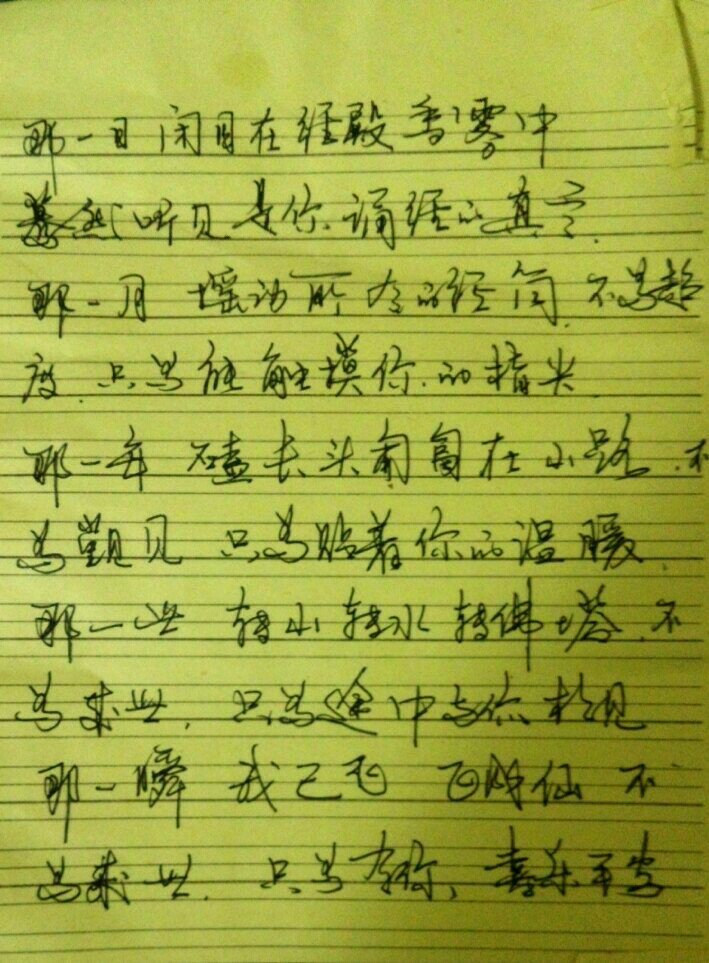 那一日闭目在经殿香雾中
蓦然听见是你诵经的真言.
那一月 摇动所有的经筒.不为超
度.只为能触摸你的指尖
那一年 磕长头匍匐在山路.不
为觐见 只为贴着你的温暖.
那一世 转山转水转佛塔.不
为来世.只为途中与你相见
那一瞬 我已飞 飞升仙 不
为来世.只为有你、喜乐平安